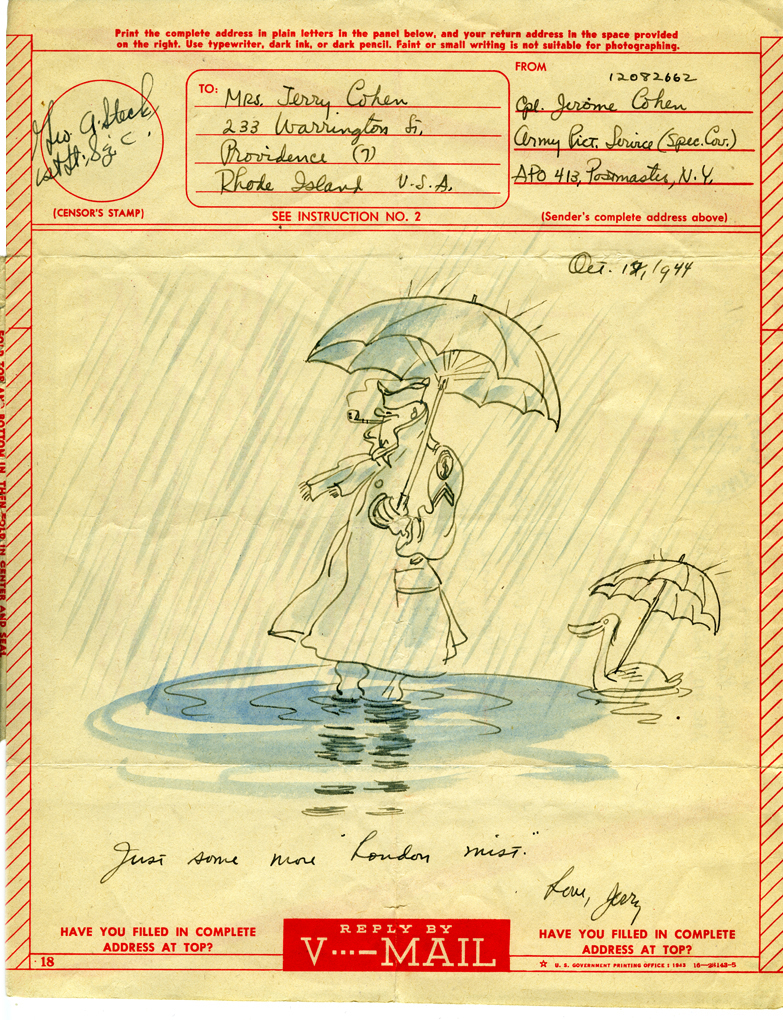 Print the complete address in plain letters in the panel below, and your return address in the space provided
on the right. Use typewriter, dark ink, or dark pencil. Faint or small writing is not suitable for photographing.
FROM
12082662
TO: Mrs. Jerry Cohen
233 Warrington St.
Providence (7)
Rhode Island U.S.A.
Cpl. Jerome Cohen
Army Pict. Service (Spec. Cov.)
APO 413, Postmaster, N.Y.
Geo. A. Steck
1st Lt. Sig. C.
(CENSOR'S STAMP)
SEE INSTRUCTION NO. 2
(Sender's complete address above)
Oct. 12, 1944
Just some more "London mist."
Love, Jerry
HAVE YOU FILLED IN COMPLETE
ADDRESS AT TOP?
REPLY BY
V···—MAIL
HAVE YOU FILLED IN COMPLETE
ADDRESS AT TOP?
18
☆ U. S. GOVERNMENT PRINTING OFFICE : 1943 16—28143-5